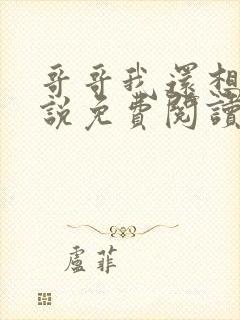 哥哥我還想
說免費閱讀
盧菲